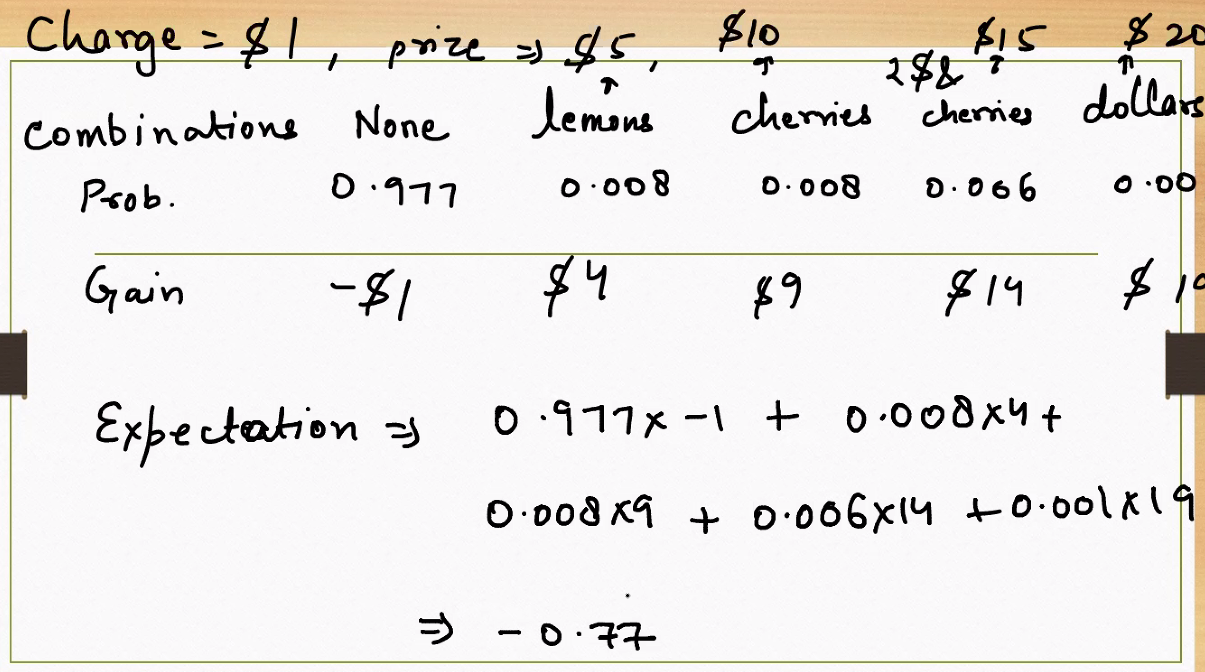 Charge = $1, prize ⇒ $5, $10 $15 $20
↑ ↑ 2$& ↑ ↑
Combinations None lemons cherries cherries dollars
Prob. 0.977 0.008 0.008 0.006 0.00
Gain -$1 $4 $9 $14 $1
Expectation ⇒ 0.977x -1 + 0.008x4+
0.008x9 + 0.006x14 +0.001x19
⇒ -0.77